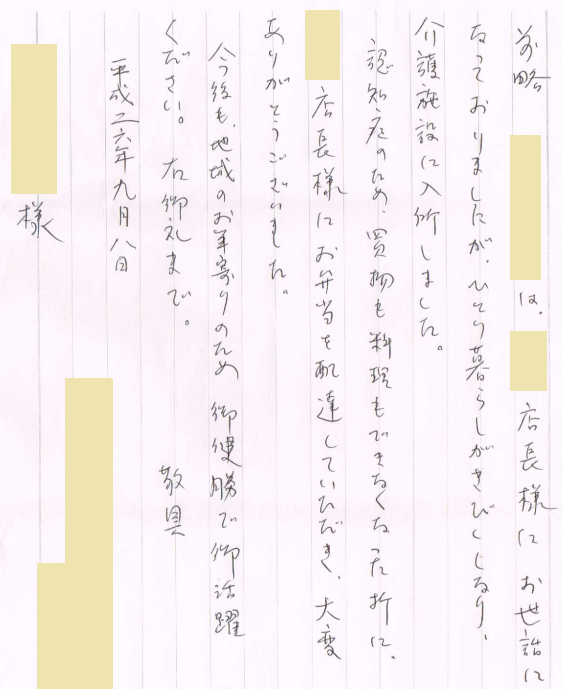 前略 は、店長様にお世話に
なっておりましたが、ひとり暮らしがきびしくなり、
介護施設に入所しました。
認知症のため、買物も料理もできなくなった折に、
店長様にお弁当を配達していただき、大変
ありがとうございました。
今後も、地域のお年寄りのため 御健勝で御活躍
ください。右御礼まで。 敬具
平成二六年九月八日
様